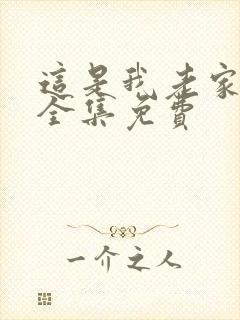 這是我老家
全集免費
一介之人